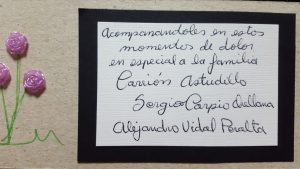 Acompañandoles en estos
momentos de dolor
en especial a la familia
Carrión Astudillo
Sergio Carpio Orellana
Alejandro Vidal Peralta